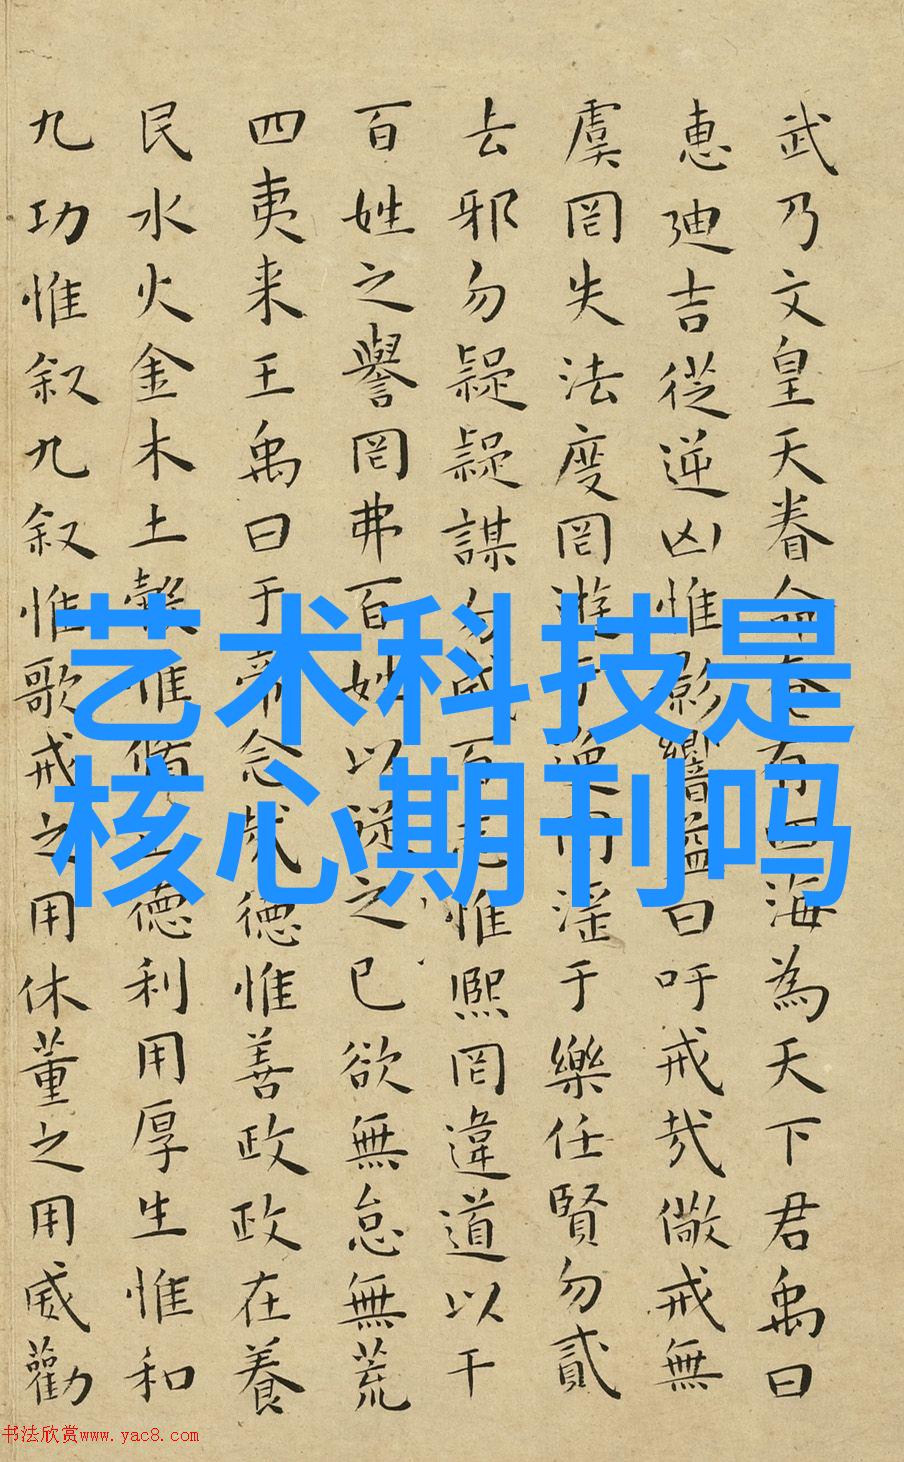 武乃文皇天眷命奄有四海為天下君禹曰
惠廸吉從逆凶惟影響益曰吁戒哉儆戒無
虞罔失法度罔遊于逸罔淫于樂任賢勿貳
去邪勿疑疑謀勿成百志惟熙罔違道以干
百姓之譽罔弗百姓以從之己欲無怠無荒
四夷来王禹曰于帝念哉德惟善政政在養
民水火金木土穀惟脩正德利用厚生惟和
九功惟叙九叙惟歌戒之用休董之用威勸
艺术科技是
核心期刊吗
书法欣赏www.yac8.com